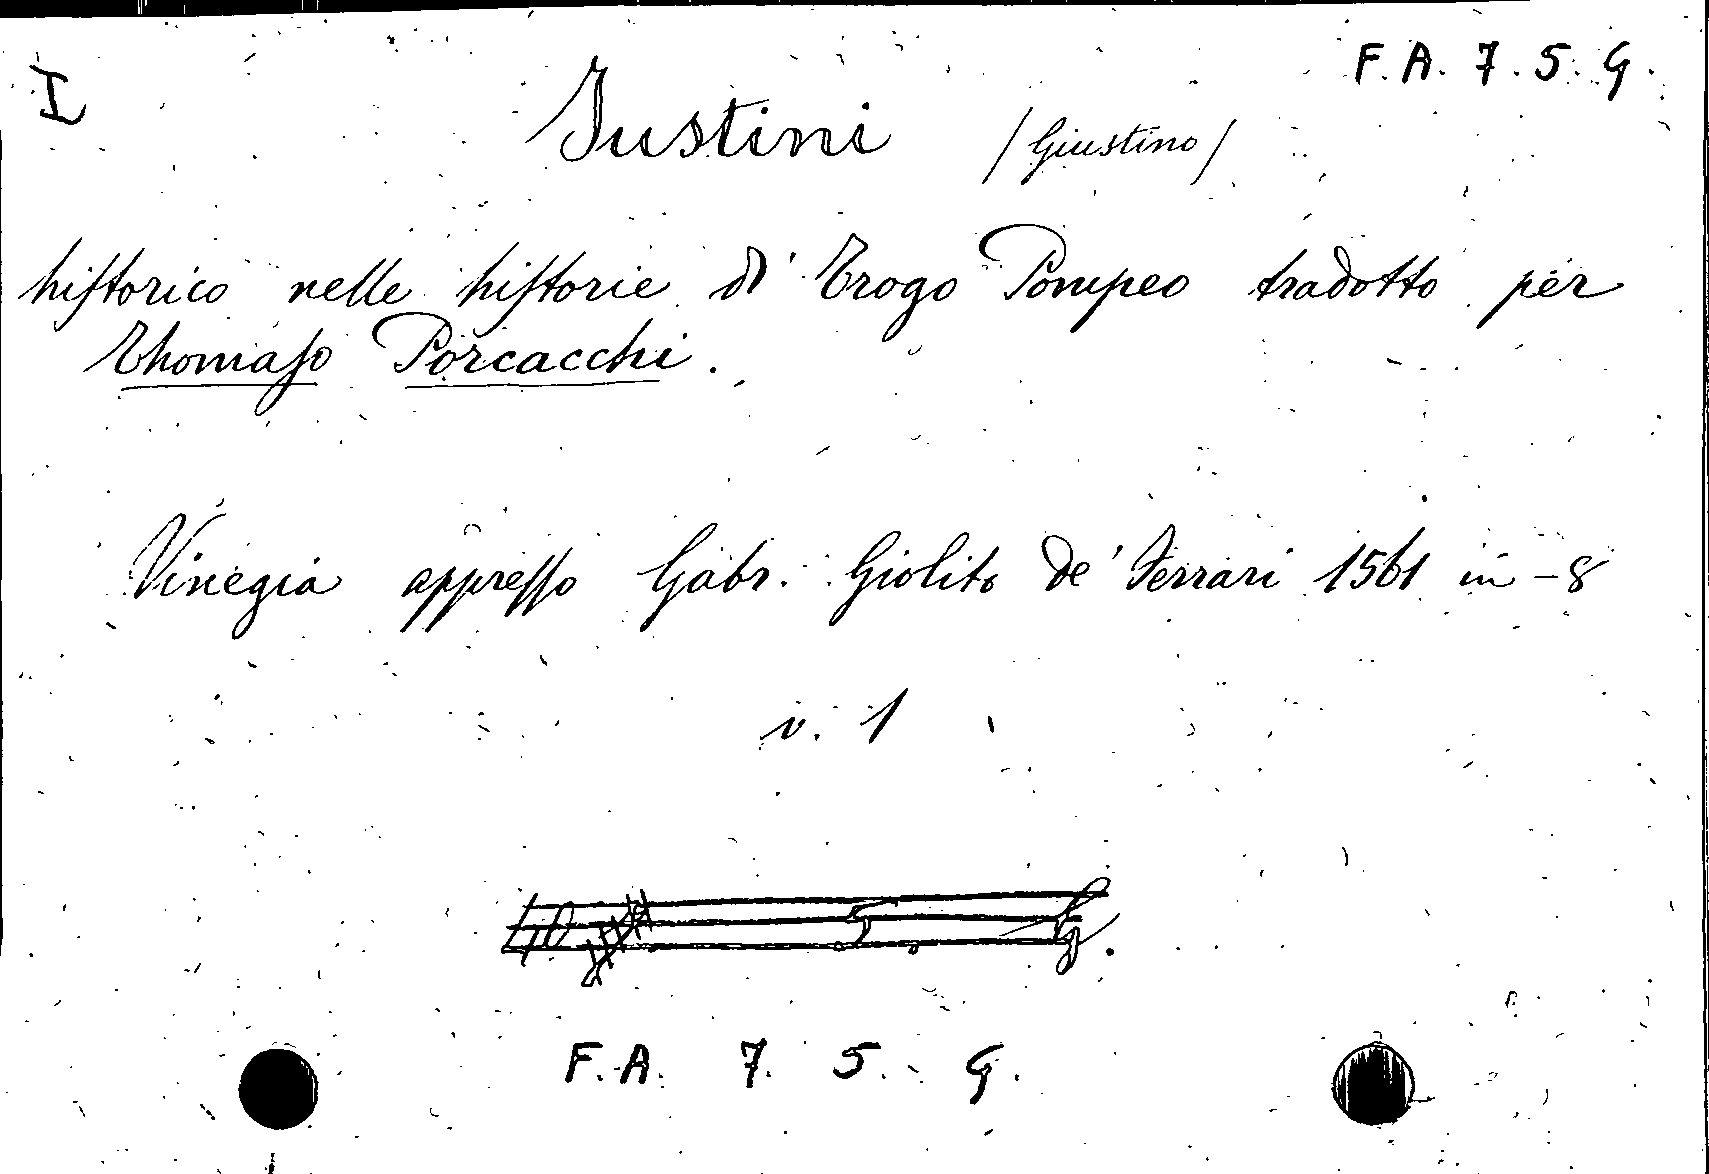 I
F. A. 7. 5. G.
Justini /Giustino/
hiſtorico nelle hiſtorie di Trogo Pompeo tradotto per
Thomaſo Porcacchi.
Vinegia appreſſo Gabr. Giolito de' Ferrari 1561 in-8
v. 1
F. A. 7. 5. G.